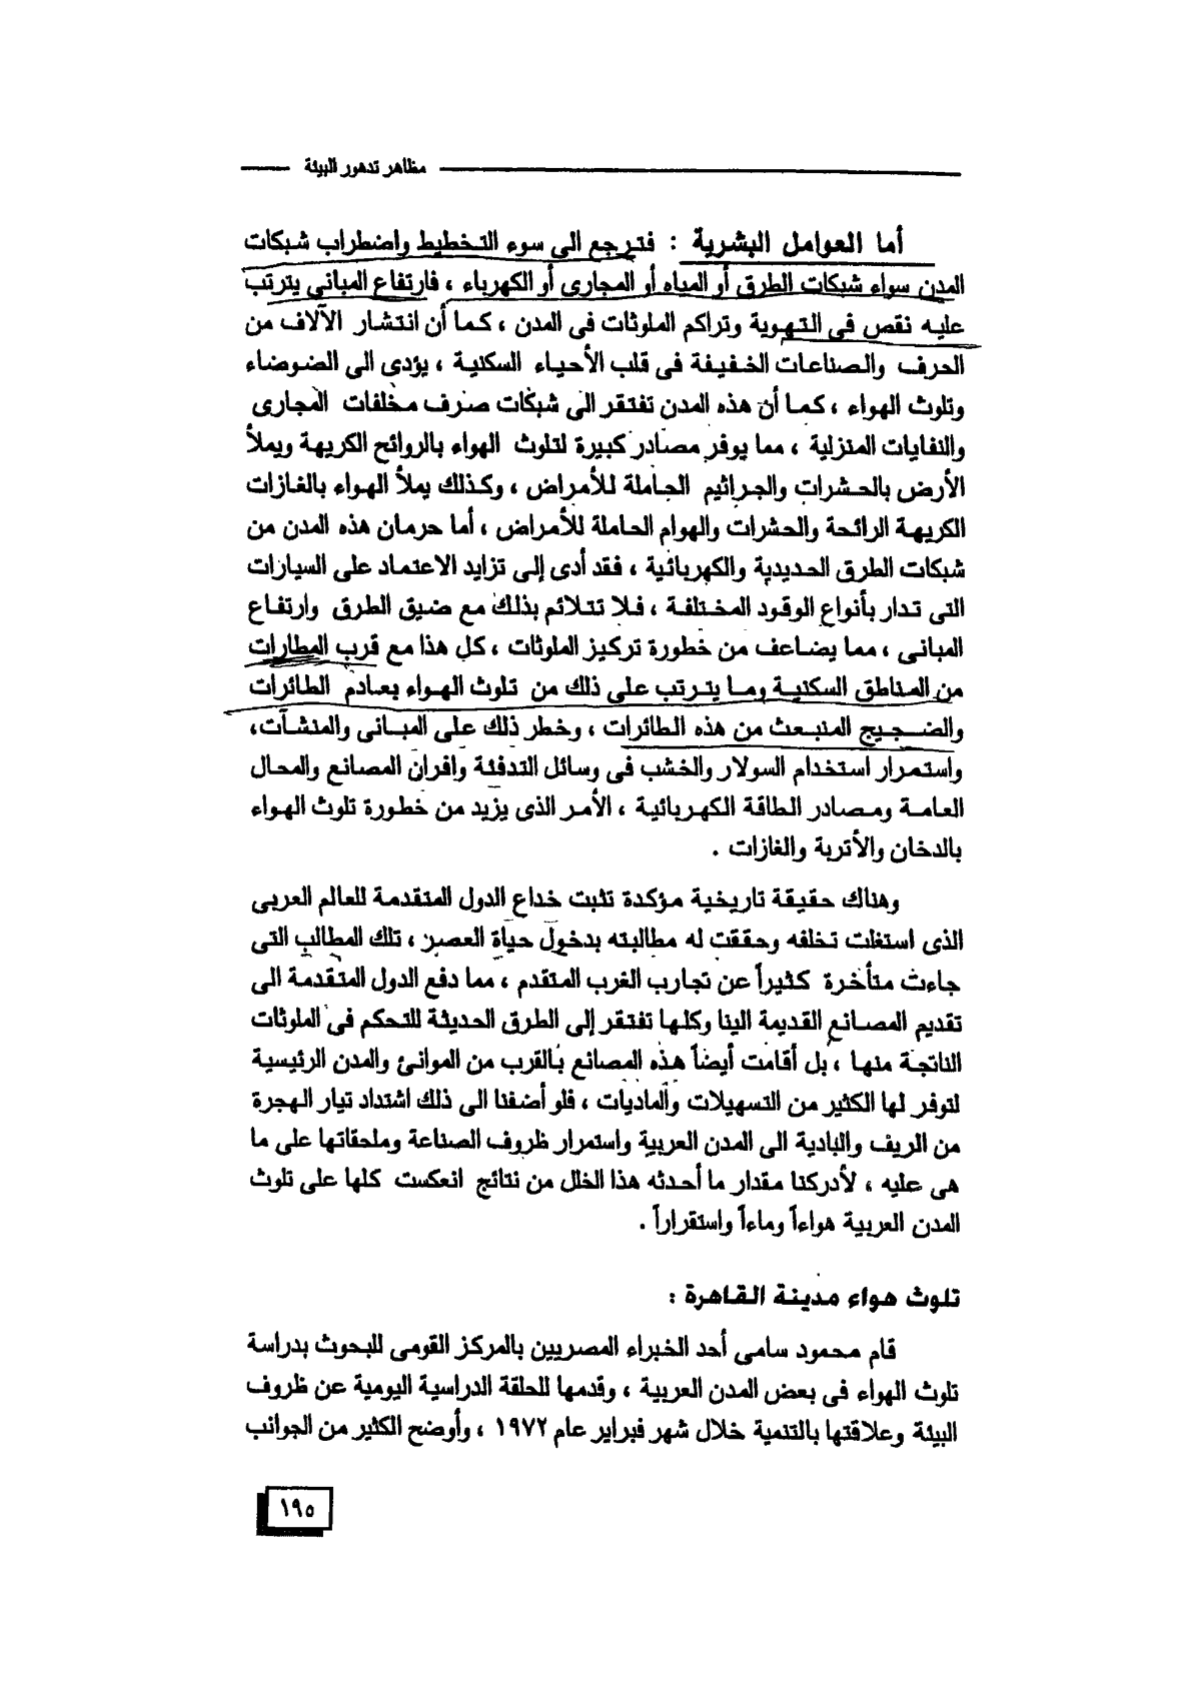 مظاهر تدهور البيئة
أما العوامل البشرية : فترجع الى سوء التخطيط واضطراب شبكات
المدن سواء شبكات الطرق أو المياه أو المجارى أو الكهرباء ، فارتفاع المبانى يترتب
عليه نقص فى التهوية وتراكم الملوثات فى المدن ، كما أن انتشار الآلاف من
الحرف والصناعات الخفيفة فى قلب الأحياء السكنية ، يؤدى الى الضوضاء
وتلوث الهواء ، كما أن هذه المدن تفتقر الى شبكات صرف مخلفات المجارى
والنفايات المنزلية ، مما يوفر مصادر كبيرة لتلوث الهواء بالروائح الكريهة ويملأ
الأرض بالحشرات والجراثيم الحاملة للأمراض ، وكذلك يملأ الهواء بالغازات
الكريهة الرائحة والحشرات والهوام الحاملة للأمراض ، أما حرمان هذه المدن من
شبكات الطرق الحديدية والكهربائية ، فقد أدى إلى تزايد الاعتماد على السيارات
التى تدار بأنواع الوقود المختلفة ، فلا تتلائم بذلك مع ضيق الطرق وارتفاع
المبانى ، مما يضاعف من خطورة تركيز الملوثات ، كل هذا مع قرب المطارات
من المناطق السكنية وما يترتب على ذلك من تلوث الهواء بعادم الطائرات
والضجيج المنبعث من هذه الطائرات ، وخطر ذلك على المبانى والمنشآت،
واستمرار استخدام السولار والخشب فى وسائل التدفئة وافران المصانع والمحال
العامة ومصادر الطاقة الكهربائية ، الأمر الذى يزيد من خطورة تلوث الهواء
بالدخان والأتربة والغازات .
وهناك حقيقة تاريخية مؤكدة تثبت خداع الدول المتقدمة للعالم العربى
الذى استغلت تخلفه وحققت له مطالبته بدخول حياة العصر ، تلك المطالب التى
جاءت متأخرة كثيراً عن تجارب الغرب المتقدم ، مما دفع الدول المتقدمة الى
تقديم المصانع القديمة الينا وكلها تفتقر إلى الطرق الحديثة للتحكم فى الملوثات
الناتجة منها ، بل أقامت أيضاً هذه المصانع بالقرب من الموانئ والمدن الرئيسية
لتوفر لها الكثير من التسهيلات والماديات ، فلو أضفنا الى ذلك اشتداد تيار الهجرة
من الريف والبادية الى المدن العربية واستمرار ظروف الصناعة وملحقاتها على ما
هى عليه ، لأدركنا مقدار ما أحدثه هذا الخلل من نتائج انعكست كلها على تلوث
المدن العربية هواءاً وماءاً واستقراراً .
تلوث هواء مدينة القاهرة :
قام محمود سامى أحد الخبراء المصريين بالمركز القومى للبحوث بدراسة
تلوث الهواء فى بعض المدن العربية ، وقدمها للحلقة الدراسية اليومية عن ظروف
البيئة وعلاقتها بالتنمية خلال شهر فبراير عام ١٩٧٢ ، وأوضح الكثير من الجوانب
١٩٥